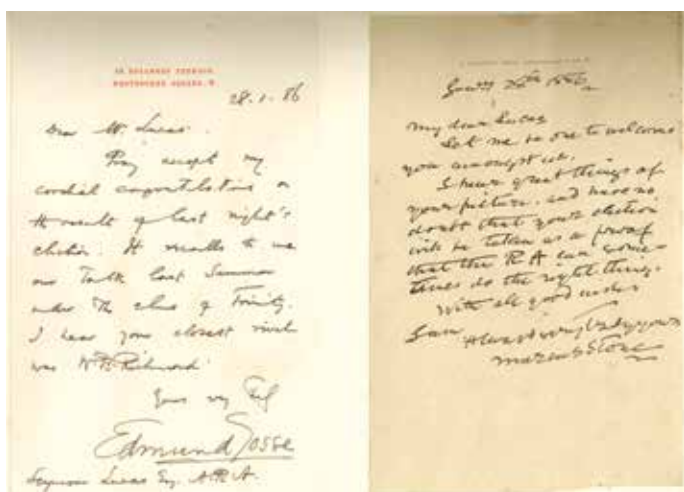 29, DELAMERE TERRACE,
WESTBOURNE SQUARE, W.
28.1.86
Dear Mr. Lucas.
Pray accept my
cordial congratulations on
the result of last night's
election. It recalls to me
our talk last Summer
under the elms of Trinity.
I hear your closest rival
was W. B. Richmond.
Yours very
Edmund Gosse
Seymour Lucas Esq. A.R.A.
My dear Lucas
Let me be one to welcome
you amongst us.
I hear great things of
your picture, and have no
doubt that your election
will be taken as a proof
that the RA can some-
times do the right thing.
With all good wishes
I am
Always very truly yours
Marcus Stone